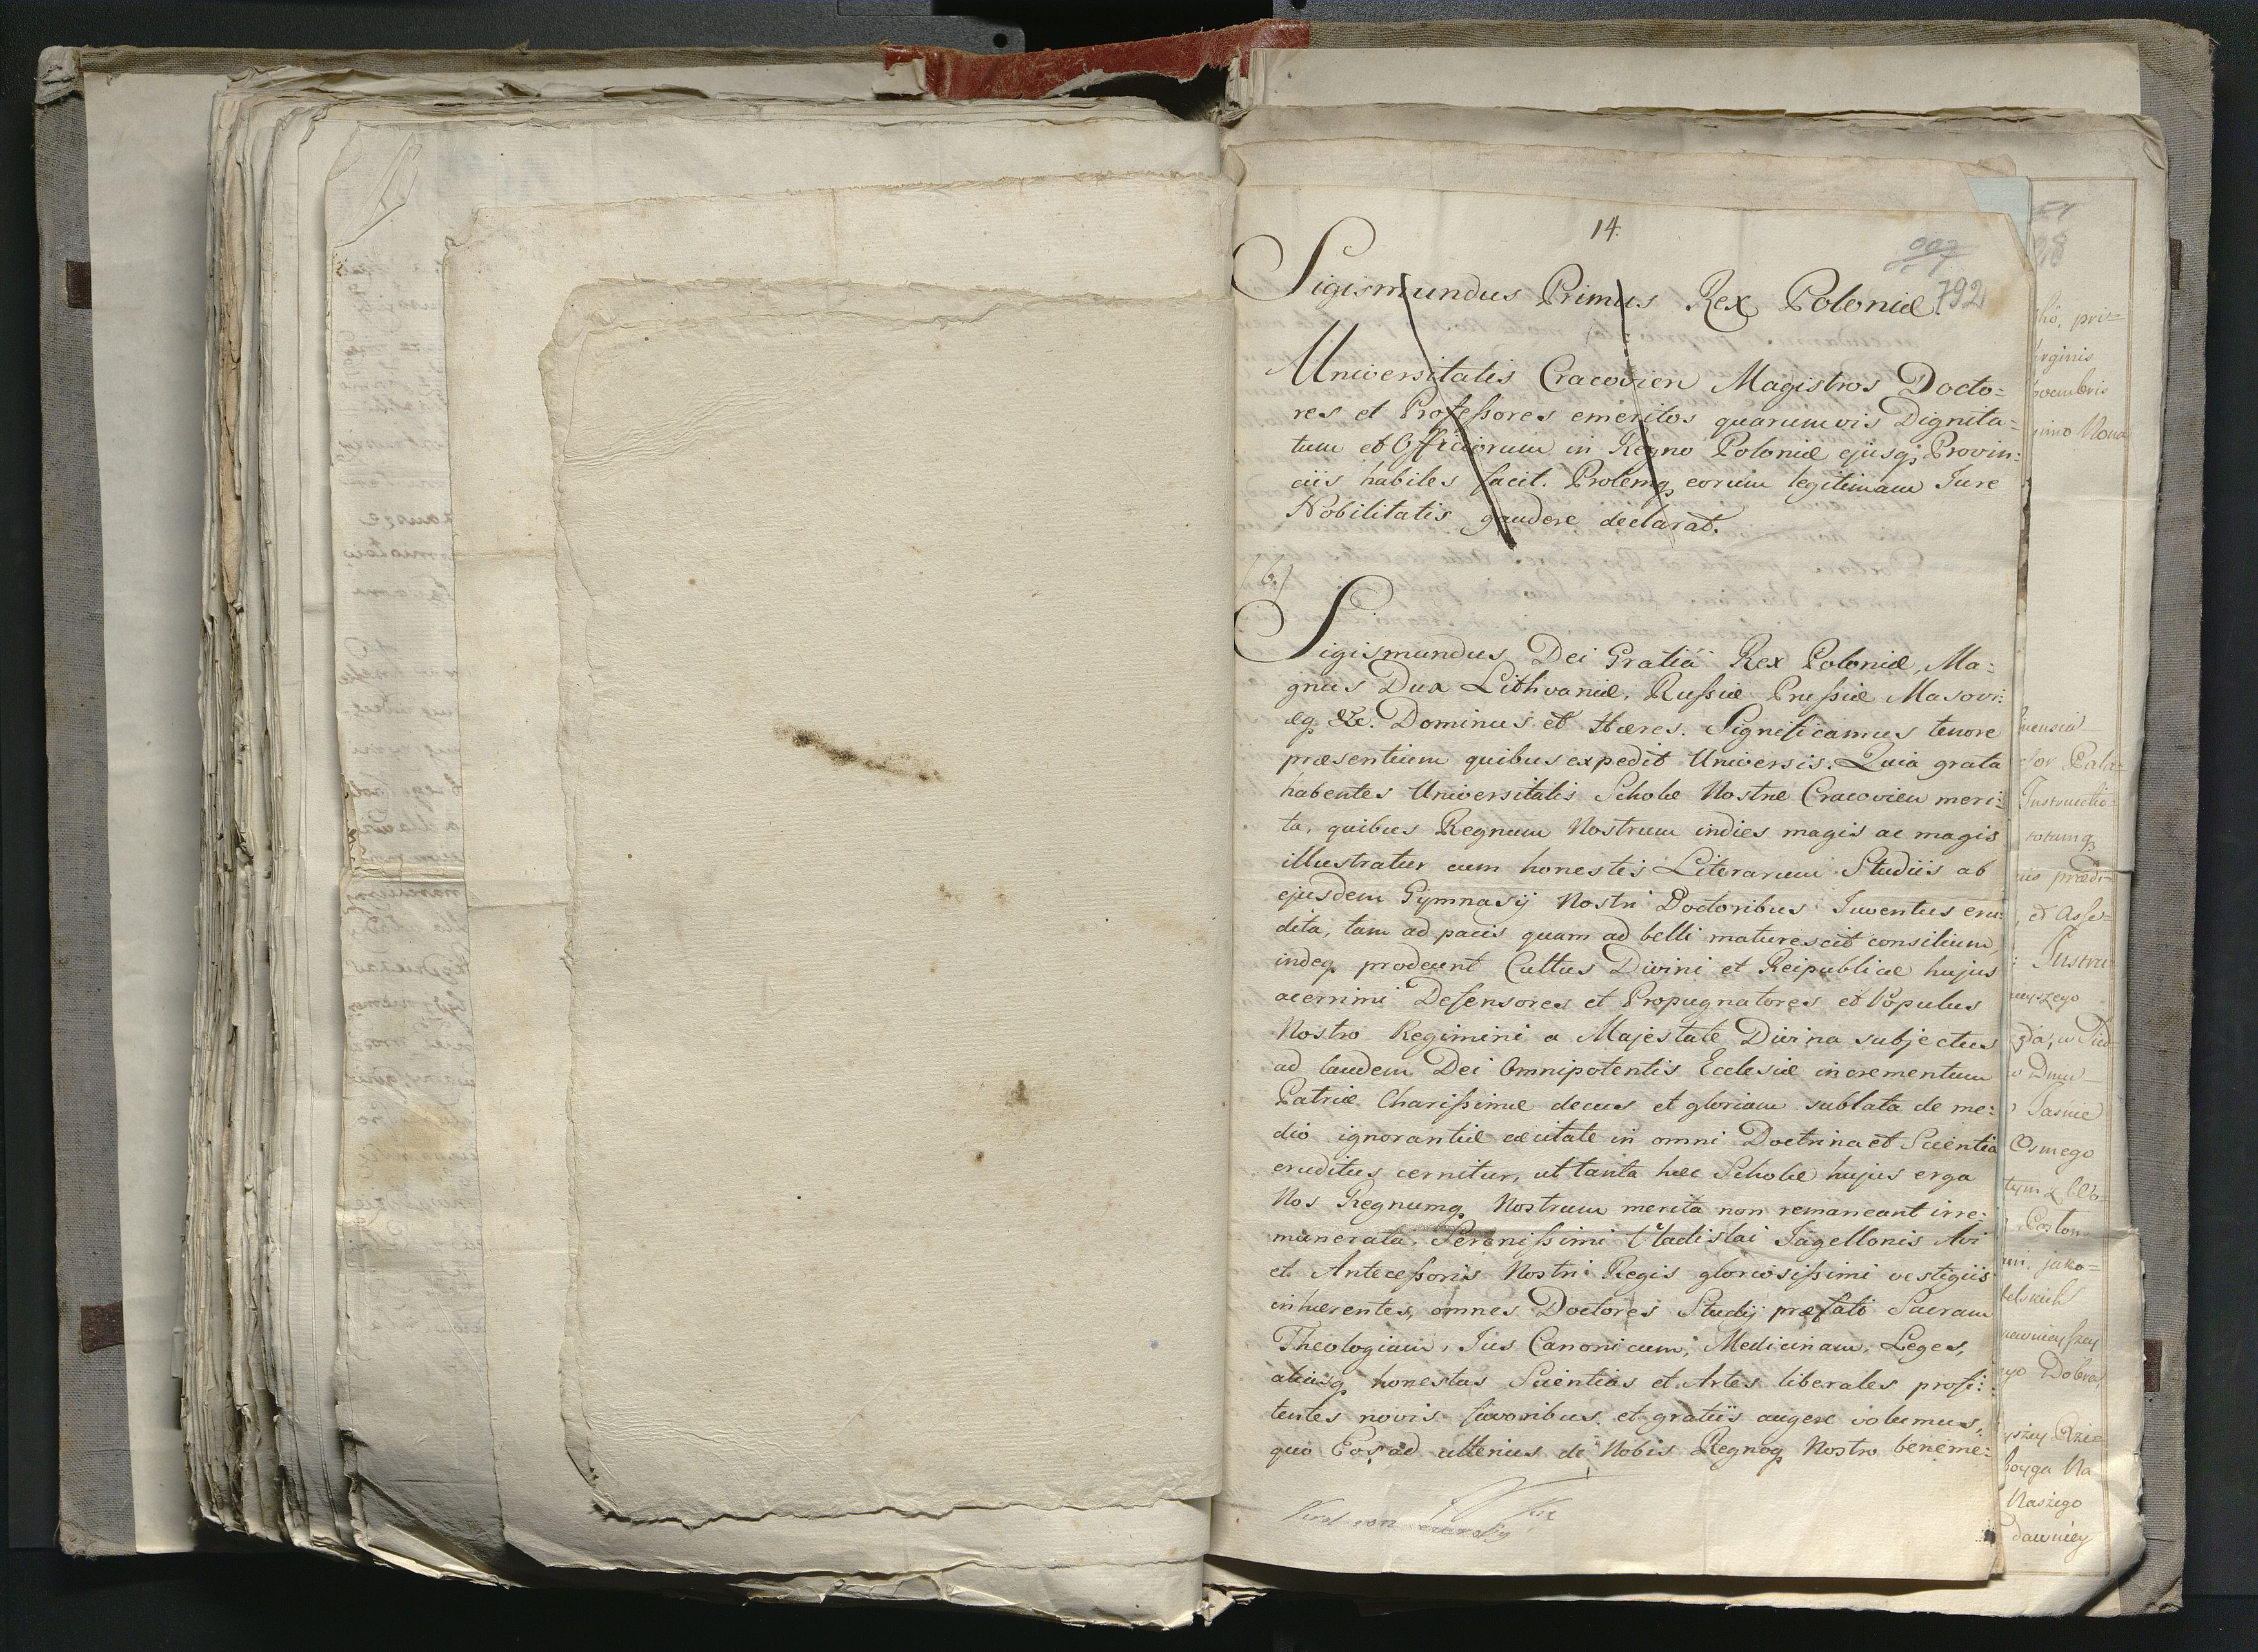 14.
792
Sigismundus Primus Rex Poloniæ.
Universitatis Cracovien Magistros Docto=
res et Professores emeritos quarumvis Dignita=
tum et Officiorum in Regno Poloniæ ejusq; Provin:
ciis habiles facit. Prolemq; eorum legitimam Jure
Nobilitatis gaudere declarat.
(6.)
Sigismundus Dei Gratiâ Rex Poloniæ, Ma:
gnus Dux Lithvaniæ, Russiæ Prussiæ Masovi:
æq; &c. Dominus et Hæres. Significamus tenore
præsentium quibus expedit Universis. Quia grata
habentes Universitatis Scholæ Nostræ Cracovien meri:
ta, quibus Regnum Nostrum indies magis ac magis
illustratur cum honestis Literarum Studiis ab
ejusdem Gymnasij Nostri Doctoribus Juventus eru:
dita, tam ad pacis quam ad belli maturescit consilium,
indeq; prodeunt Cultus Divini et Reipublicæ hujus
acerrimi Defensores et Propugnatores et Populus
Nostro Regimini a Majestate Divina subjectus
ad laudem Dei Omnipotentis Ecclesiæ incrementum
Patriæ Charissimæ decus et gloriam sublata de me:
dio ignorantiæ cæcitate in omni Doctrina et Scientia
eruditus cernitur, ut tanta hæc Scholæ hujus erga
Nos Regnumq; Nostrum merita non remaneant irre:
munerata, Serenissimi Vladislai Jagellonis Avi
et Antecessoris Nostri Regis gloriosissimi vestigiis
inhærentes, omnes Doctores Studij præfati Sacram
Theologiam, Jus Canonicum, Medicinam, Leges,
aliasq; honestas Scientias et Artes liberales profi:
tentes novis favoribus et gratiis augere volumus,
quo Eos ad ulterius de Nobis Regnoq; Nostro beneme:
28
pri=
Virginis
ovembris
Instructio
et Asse=
Jasnie
Osmego
jako=
Dobra
Na
Naszego
dawniey